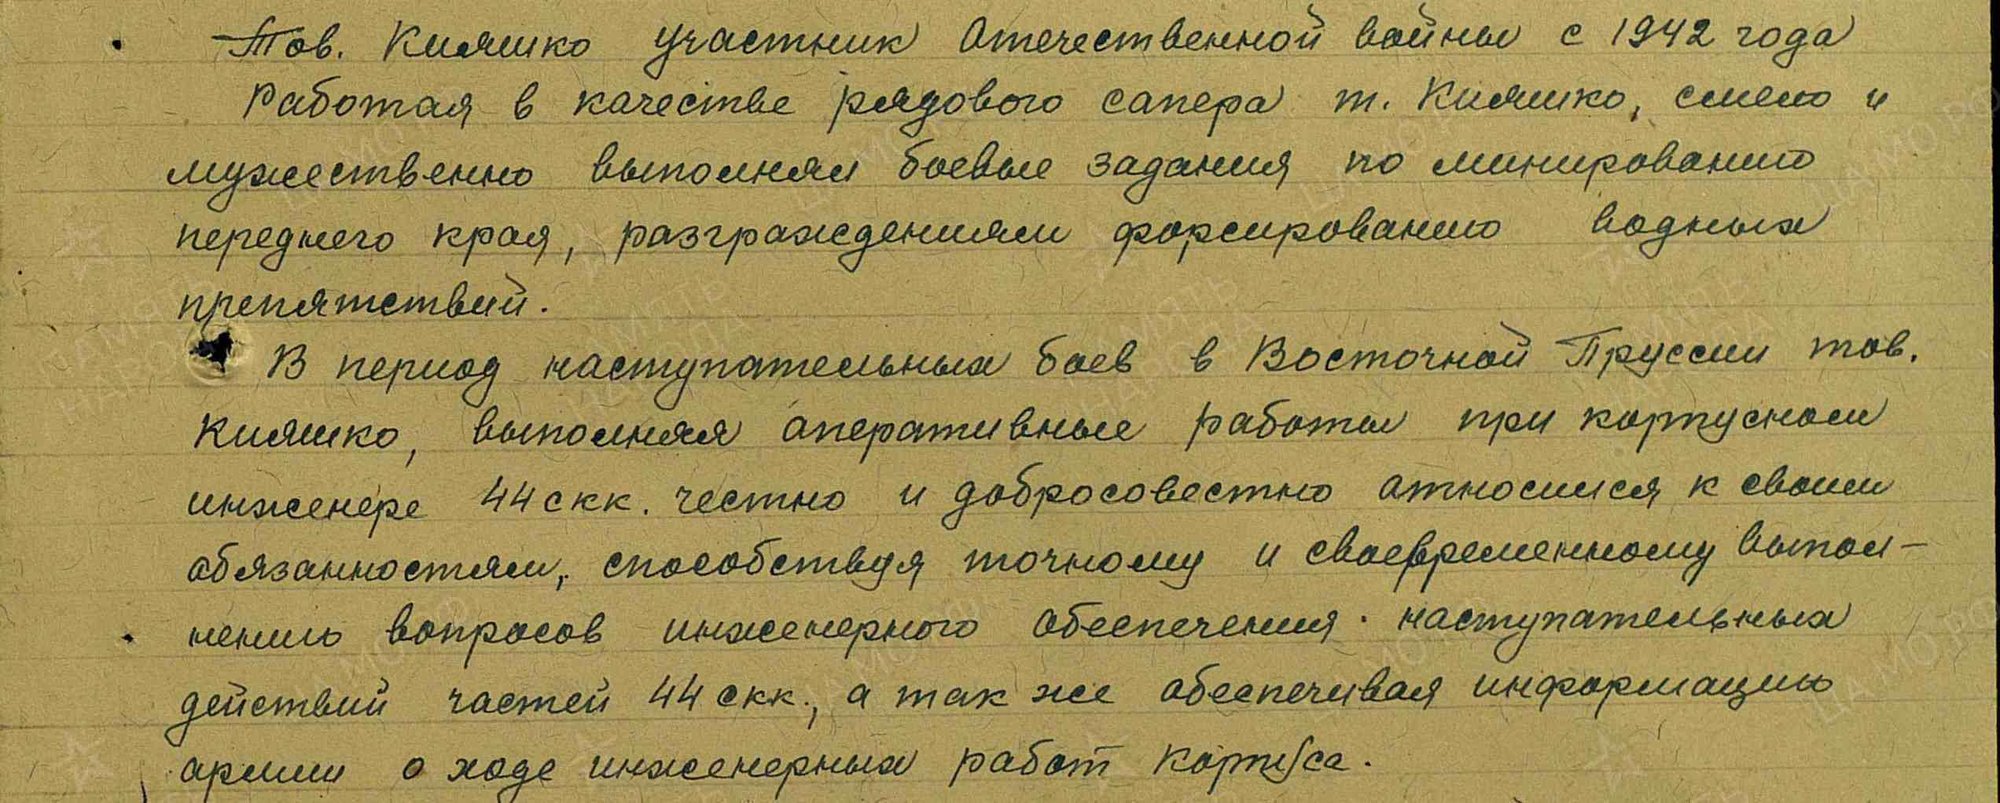 Тов. Кияшко участник Отечественной войны с 1942 года
Работая в качестве рядового сапера т. Кияшко, смело и
мужественно выполнял боевые задания по минированию
переднего края, разграждениям форсированию водных
препятствий.
В период наступательных боев в Восточной Пруссии тов.
Кияшко, выполняя оперативные работы при корпусном
инженере 44 скк. честно и добросовестно относился к своим
обязанностям, способствуя точному и своевременному выпол-
нению вопросов инженерного обеспечения наступательных
действий частей 44 скк., а так же обеспечивая информацию
армии о ходе инженерных работ корпуса.